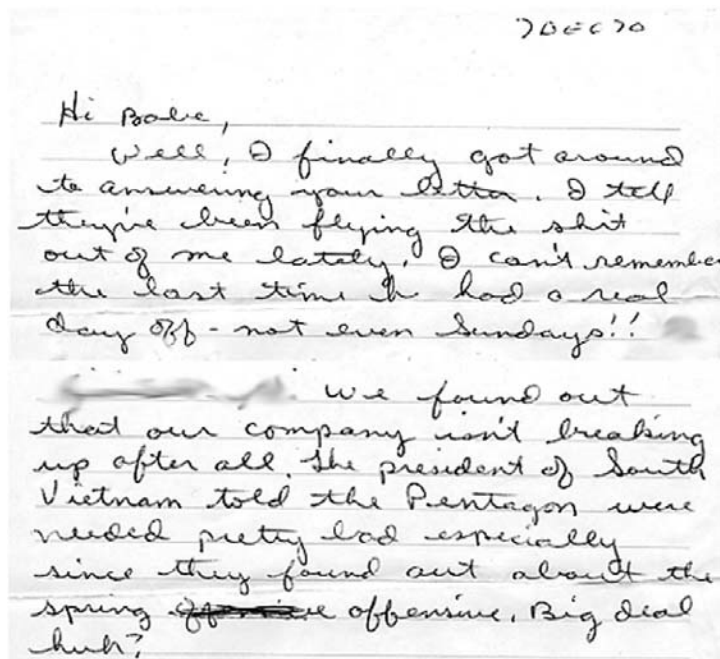 7 DEC 70
Hi Babe,
Well, I finally got around
to answering your letter. I tell
they've been flying the shit
out of me lately. I can't remember
the last time I had a real
day off - not even Sundays!!
We found out
that our company isn't breaking
up after all. The president of South
Vietnam told the Pentagon were
needed pretty bad especially
since they found out about the
spring offensive. Big deal
huh?